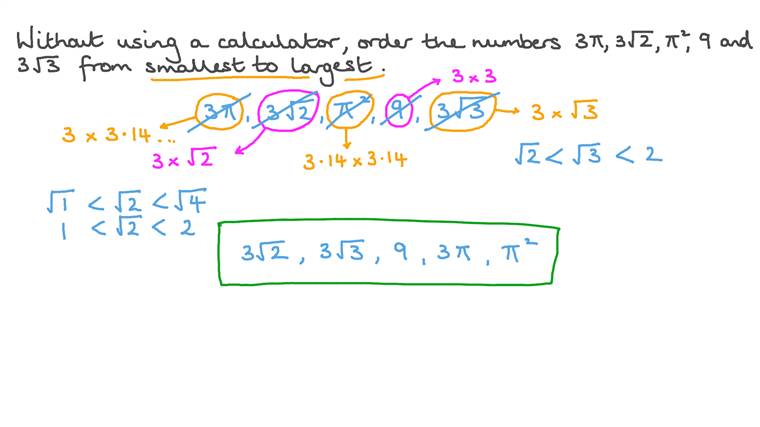 Without using a calculator, order the numbers 3π, 3√2, π², 9 and
3√3 from smallest to largest.
3 × 3
3π, 3√2, π², 9, 3√3
3 × √3
3 × 3·14...
3 × √2
3·14 × 3·14
√2 < √3 < 2
√1 < √2 < √4
1 < √2 < 2
3√2, 3√3, 9, 3π, π²